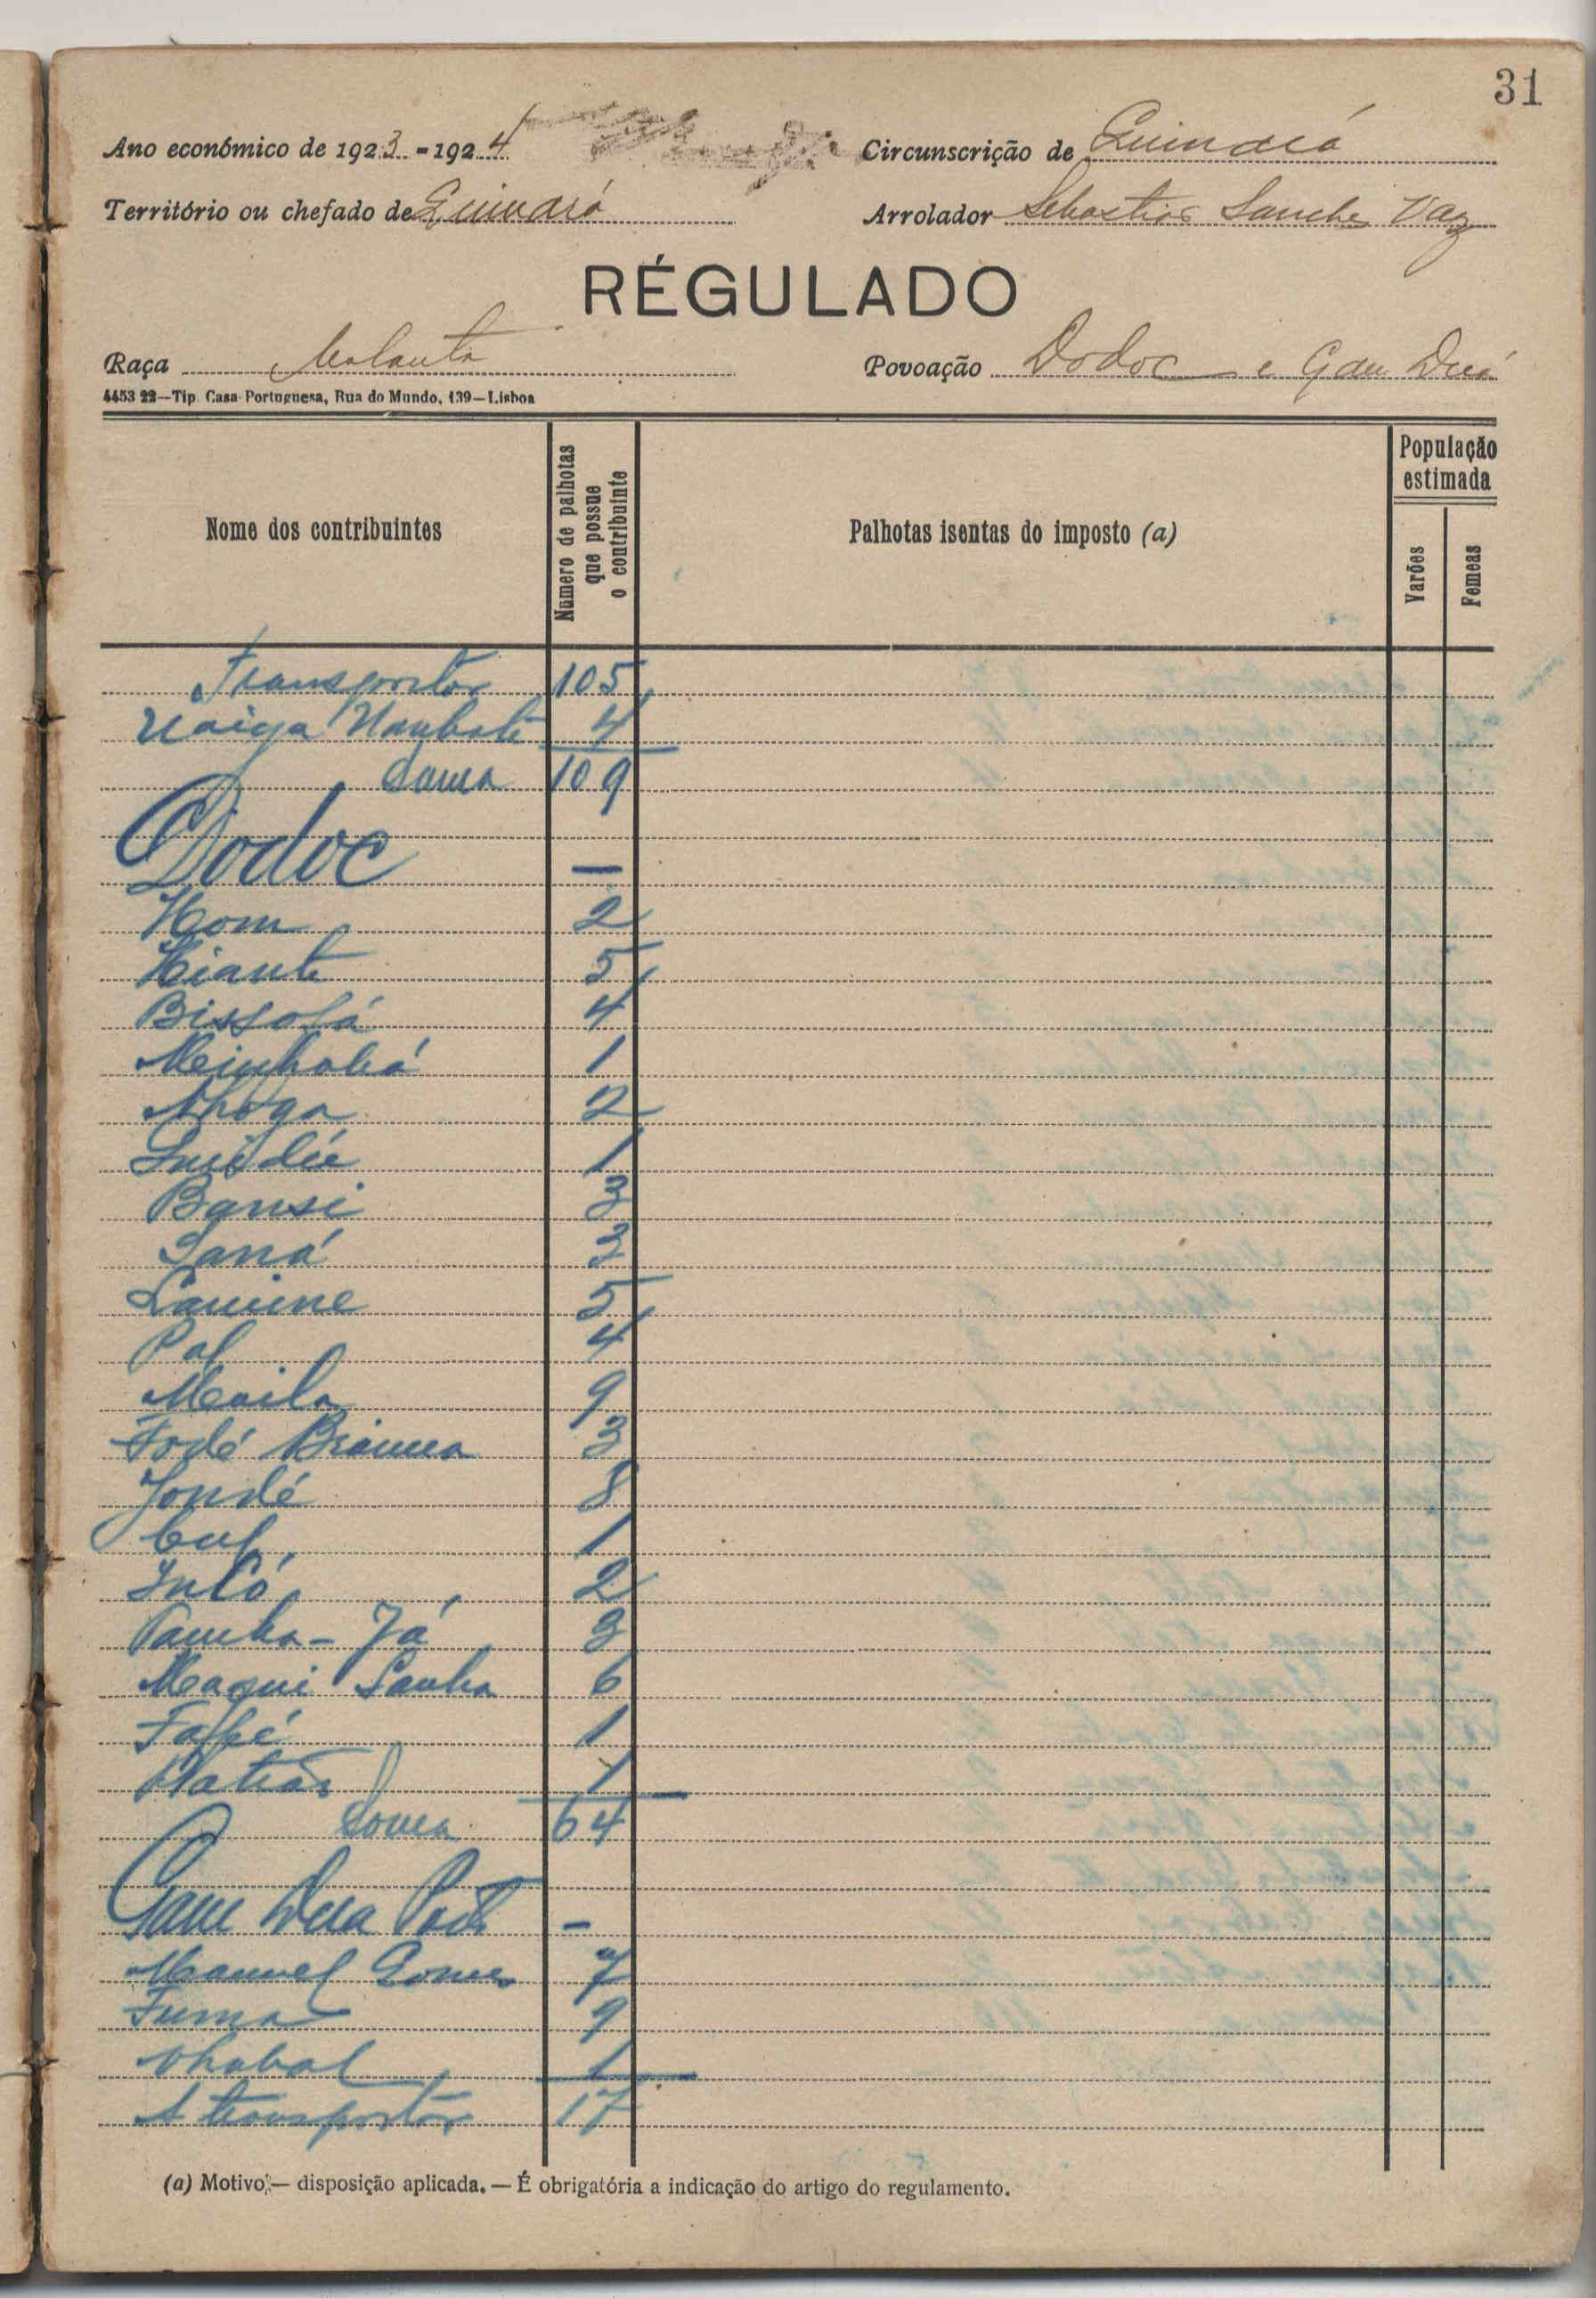 31
Ano económico de 1923-1924 Circunscrição de Quinará
Território ou chefado de Quinará Arrolador Sebastião Sanches Vaz
RÉGULADO
Raça Balanta Povoação Dodoc e Gam Duá
4453 22—Tip. Casa Portuguesa, Rua do Mundo, 139—Lisboa
Nome dos contribuintes
Número de palhotas que possue o contribuinte
Palhotas isentas do imposto (a)
População estimada
Varões
Femeas
Transporte 105
4
Soma 109
Dodoc —
Hom 2
Kiante 5
Bissolá 4
1
Nhoga 2
1
Bansi 3
Saná 3
Lamine 5
Pal 4
Maila 9
Fodé Brama 3
Jondé 8
1
2
Tamba-Já 3
Maqui Sanha 6
1
Matias 1
Soma 64
Gam Dua —
Manuel Gomes 7
Fuma 9
Nhabal 1
A transportar 17
(a) Motivo — disposição aplicada. — É obrigatória a indicação do artigo do regulamento.